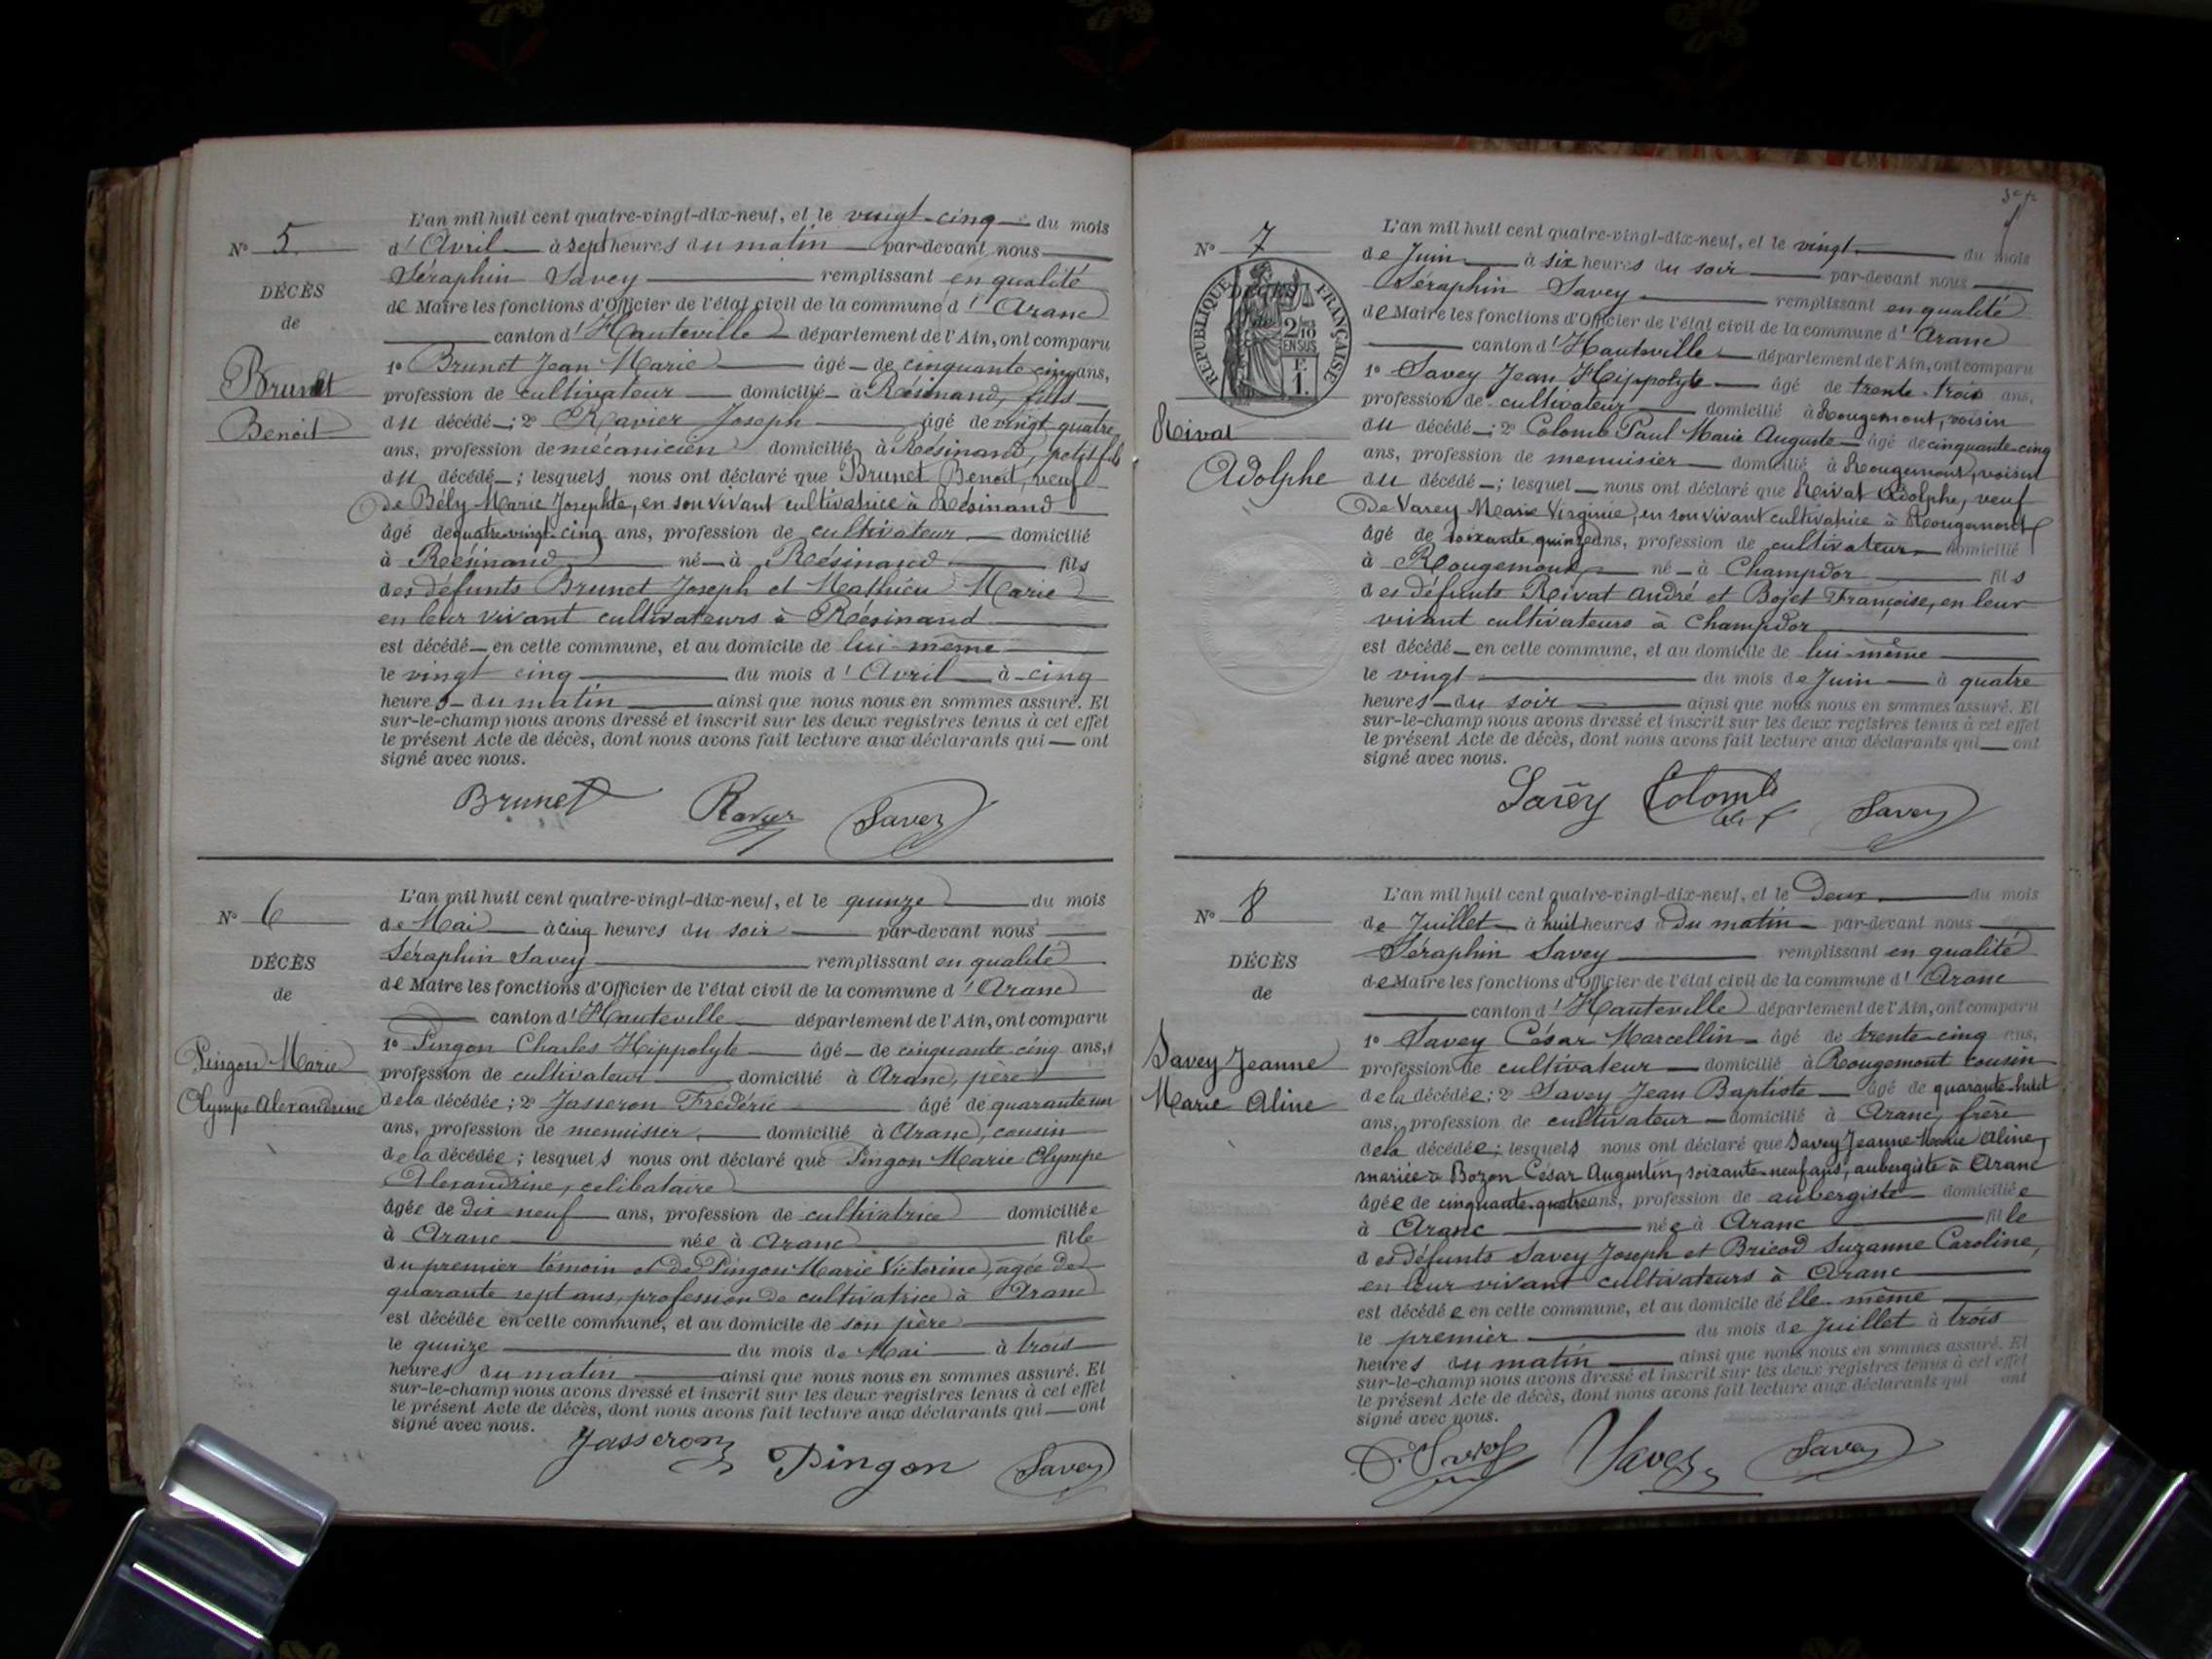 L'an mil huit cent quatre-vingt-dix-neuf, et le vingt-cinq du mois
N° 5
d'Avril à sept heures du matin par-devant nous
Séraphin Savey remplissant en qualité
DÉCÈS
de Maire les fonctions d'Officier de l'état civil de la commune d'Aranc
de
canton d'Hauteville département de l'Ain, ont comparu
1° Brunet Jean Marie âgé de cinquante cinq ans,
Brunet
profession de cultivateur domicilié à Résinand, fils
Benoit
du décédé ; 2° Ravier Joseph âgé de vingt quatre
ans, profession de mécanicien domicilié à Résinand, petit fils
du décédé ; lesquels nous ont déclaré que Brunet Benoit, veuf
de Bély Marie Josephte, en son vivant cultivatrice à Résinand
âgé de quatre-vingt-cinq ans, profession de cultivateur domicilié
à Résinand né à Résinand fils
des défunts Brunet Joseph et Mathieu Marie
en leur vivant cultivateurs à Résinand
est décédé en cette commune, et au domicile de lui-même
le vingt cinq du mois d'Avril à cinq
heures du matin ainsi que nous nous en sommes assuré. Et
sur-le-champ nous avons dressé et inscrit sur les deux registres tenus à cet effet
le présent Acte de décès, dont nous avons fait lecture aux déclarants qui ont
signé avec nous.
Brunet Ravier Savey
L'an mil huit cent quatre-vingt-dix-neuf, et le quinze du mois
N° 6
de Mai à cinq heures du soir par-devant nous
Séraphin Savey remplissant en qualité
DÉCÈS
de Maire les fonctions d'Officier de l'état civil de la commune d'Aranc
de
canton d'Hauteville département de l'Ain, ont comparu
1° Pingon Charles Hippolyte âgé de cinquante cinq ans,
Pingon Marie
profession de cultivateur domicilié à Aranc, père
Olympe Alexandrine
de la décédée ; 2° Jasseron Frédéric âgé de quarante un
ans, profession de menuisier domicilié à Aranc, cousin
de la décédée ; lesquels nous ont déclaré que Pingon Marie Olympe
Alexandrine, celibataire
âgée de dix neuf ans, profession de cultivatrice domiciliée
à Aranc née à Aranc fille
du premier témoin et de Pingon Marie Victorine, âgée de
quarante sept ans, profession de cultivatrice à Aranc
est décédée en cette commune, et au domicile de son père
le quinze du mois de Mai à trois
heures du matin ainsi que nous nous en sommes assuré. Et
sur-le-champ nous avons dressé et inscrit sur les deux registres tenus à cet effet
le présent Acte de décès, dont nous avons fait lecture aux déclarants qui ont
signé avec nous.
Jasseron Pingon Savey
L'an mil huit cent quatre-vingt-dix-neuf, et le vingt du mois
N° 7
de Juin à six heures du soir par-devant nous
RÉPUBLIQUE FRANÇAISE
DÉCÈS
de
2/10 EN SUS
F. 1.
Séraphin Savey remplissant en qualité
de Maire les fonctions d'Officier de l'état civil de la commune d'Aranc
canton d'Hauteville département de l'Ain, ont comparu
1° Savey Jean Hippolyte âgé de trente-trois ans,
profession de cultivateur domicilié à Rougemont, voisin
Rivat
du décédé ; 2° Colomb Paul Marie Auguste âgé de cinquante-cinq
ans, profession de menuisier domicilié à Rougemont, voisin
Adolphe
du décédé ; lesquel nous ont déclaré que Rivat Adolphe, veuf
de Varey Marie Virginie, en son vivant cultivatrice à Rougemont
âgé de soixante quinze ans, profession de cultivateur domicilié
à Rougemont né à Champdor fils
des défunts Rivat André et Bojet Françoise, en leur
vivant cultivateurs à Champdor
est décédé en cette commune, et au domicile de lui-même
le vingt du mois de Juin à quatre
heures du soir ainsi que nous nous en sommes assuré. Et
sur-le-champ nous avons dressé et inscrit sur les deux registres tenus à cet effet
le présent Acte de décès, dont nous avons fait lecture aux déclarants qui ont
signé avec nous.
Savey Colomb Savey
L'an mil huit cent quatre-vingt-dix-neuf, et le deux du mois
N° 8
de Juillet à huit heures du matin par-devant nous
Séraphin Savey remplissant en qualité
DÉCÈS
de Maire les fonctions d'Officier de l'état civil de la commune d'Aranc
de
canton d'Hauteville département de l'Ain, ont comparu
1° Savey César Marcellin âgé de trente-cinq ans,
Savey Jeanne
profession de cultivateur domicilié à Rougemont cousin
Marie Aline
de la décédée ; 2° Savey Jean Baptiste âgé de quarante-huit
ans, profession de cultivateur domicilié à Aranc, frère
de la décédée ; lesquels nous ont déclaré que Savey Jeanne Marie Aline,
mariée à Bozon César Augustin, soixante-neuf ans, aubergiste à Aranc
âgée de cinquante-quatre ans, profession de aubergiste domiciliée
à Aranc née à Aranc fille
des défunts Savey Joseph et Bricod Suzanne Caroline,
en leur vivant cultivateurs à Aranc
est décédée en cette commune, et au domicile d'elle-même
le premier du mois de Juillet à trois
heures du matin ainsi que nous nous en sommes assuré. Et
sur-le-champ nous avons dressé et inscrit sur les deux registres tenus à cet effet
le présent Acte de décès, dont nous avons fait lecture aux déclarants qui ont
signé avec nous.
Savey Savey Savey